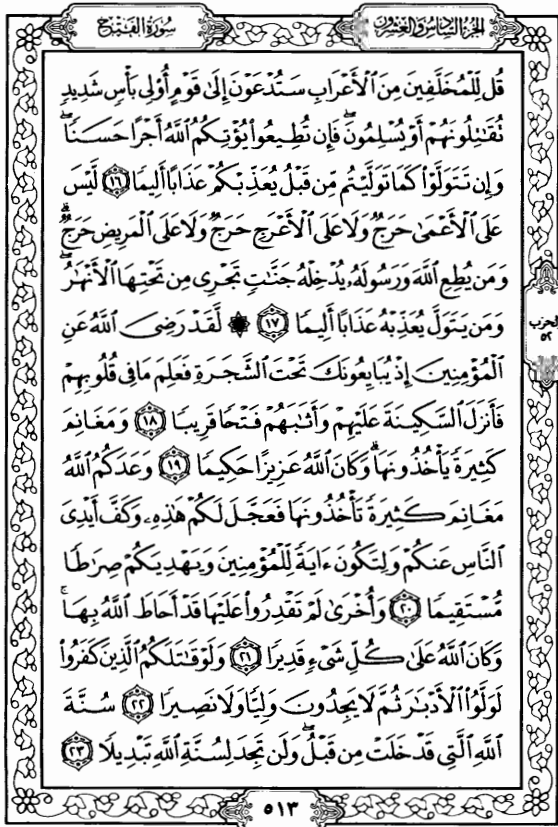 سُورَةُ الْفَتْحِ
الجُزْءُ السَّادِسُ وَالْعِشْرُونَ
قُل لِّلْمُخَلَّفِينَ مِنَ ٱلْأَعْرَابِ سَتُدْعَوْنَ إِلَىٰ قَوْمٍ أُو۟لِى بَأْسٍ شَدِيدٍ
تُقَـٰتِلُونَهُمْ أَوْ يُسْلِمُونَ ۖ فَإِن تُطِيعُوا۟ يُؤْتِكُمُ ٱللَّهُ أَجْرًا حَسَنًا ۖ
وَإِن تَتَوَلَّوْا۟ كَمَا تَوَلَّيْتُم مِّن قَبْلُ يُعَذِّبْكُمْ عَذَابًا أَلِيمًا ١٦ لَّيْسَ
عَلَى ٱلْأَعْمَىٰ حَرَجٌ وَلَا عَلَى ٱلْأَعْرَجِ حَرَجٌ وَلَا عَلَى ٱلْمَرِيضِ حَرَجٌ ۗ
وَمَن يُطِعِ ٱللَّهَ وَرَسُولَهُۥ يُدْخِلْهُ جَنَّـٰتٍ تَجْرِى مِن تَحْتِهَا ٱلْأَنْهَـٰرُ ۖ
وَمَن يَتَوَلَّ يُعَذِّبْهُ عَذَابًا أَلِيمًا ١٧ ۞ لَّقَدْ رَضِىَ ٱللَّهُ عَنِ
ٱلْمُؤْمِنِينَ إِذْ يُبَايِعُونَكَ تَحْتَ ٱلشَّجَرَةِ فَعَلِمَ مَا فِى قُلُوبِهِمْ
فَأَنزَلَ ٱلسَّكِينَةَ عَلَيْهِمْ وَأَثَـٰبَهُمْ فَتْحًا قَرِيبًا ١٨ وَمَغَانِمَ
كَثِيرَةً يَأْخُذُونَهَا ۗ وَكَانَ ٱللَّهُ عَزِيزًا حَكِيمًا ١٩ وَعَدَكُمُ ٱللَّهُ
مَغَانِمَ كَثِيرَةً تَأْخُذُونَهَا فَعَجَّلَ لَكُمْ هَـٰذِهِۦ وَكَفَّ أَيْدِىَ
ٱلنَّاسِ عَنكُمْ وَلِتَكُونَ ءَايَةً لِّلْمُؤْمِنِينَ وَيَهْدِيَكُمْ صِرَٰطًا
مُّسْتَقِيمًا ٢٠ وَأُخْرَىٰ لَمْ تَقْدِرُوا۟ عَلَيْهَا قَدْ أَحَاطَ ٱللَّهُ بِهَا ۚ
وَكَانَ ٱللَّهُ عَلَىٰ كُلِّ شَىْءٍ قَدِيرًا ٢١ وَلَوْ قَـٰتَلَكُمُ ٱلَّذِينَ كَفَرُوا۟
لَوَلَّوُا۟ ٱلْأَدْبَـٰرَ ثُمَّ لَا يَجِدُونَ وَلِيًّا وَلَا نَصِيرًا ٢٢ سُنَّةَ
ٱللَّهِ ٱلَّتِى قَدْ خَلَتْ مِن قَبْلُ ۖ وَلَن تَجِدَ لِسُنَّةِ ٱللَّهِ تَبْدِيلًا ٢٣
الحِزْب
٥٢
٥١٣